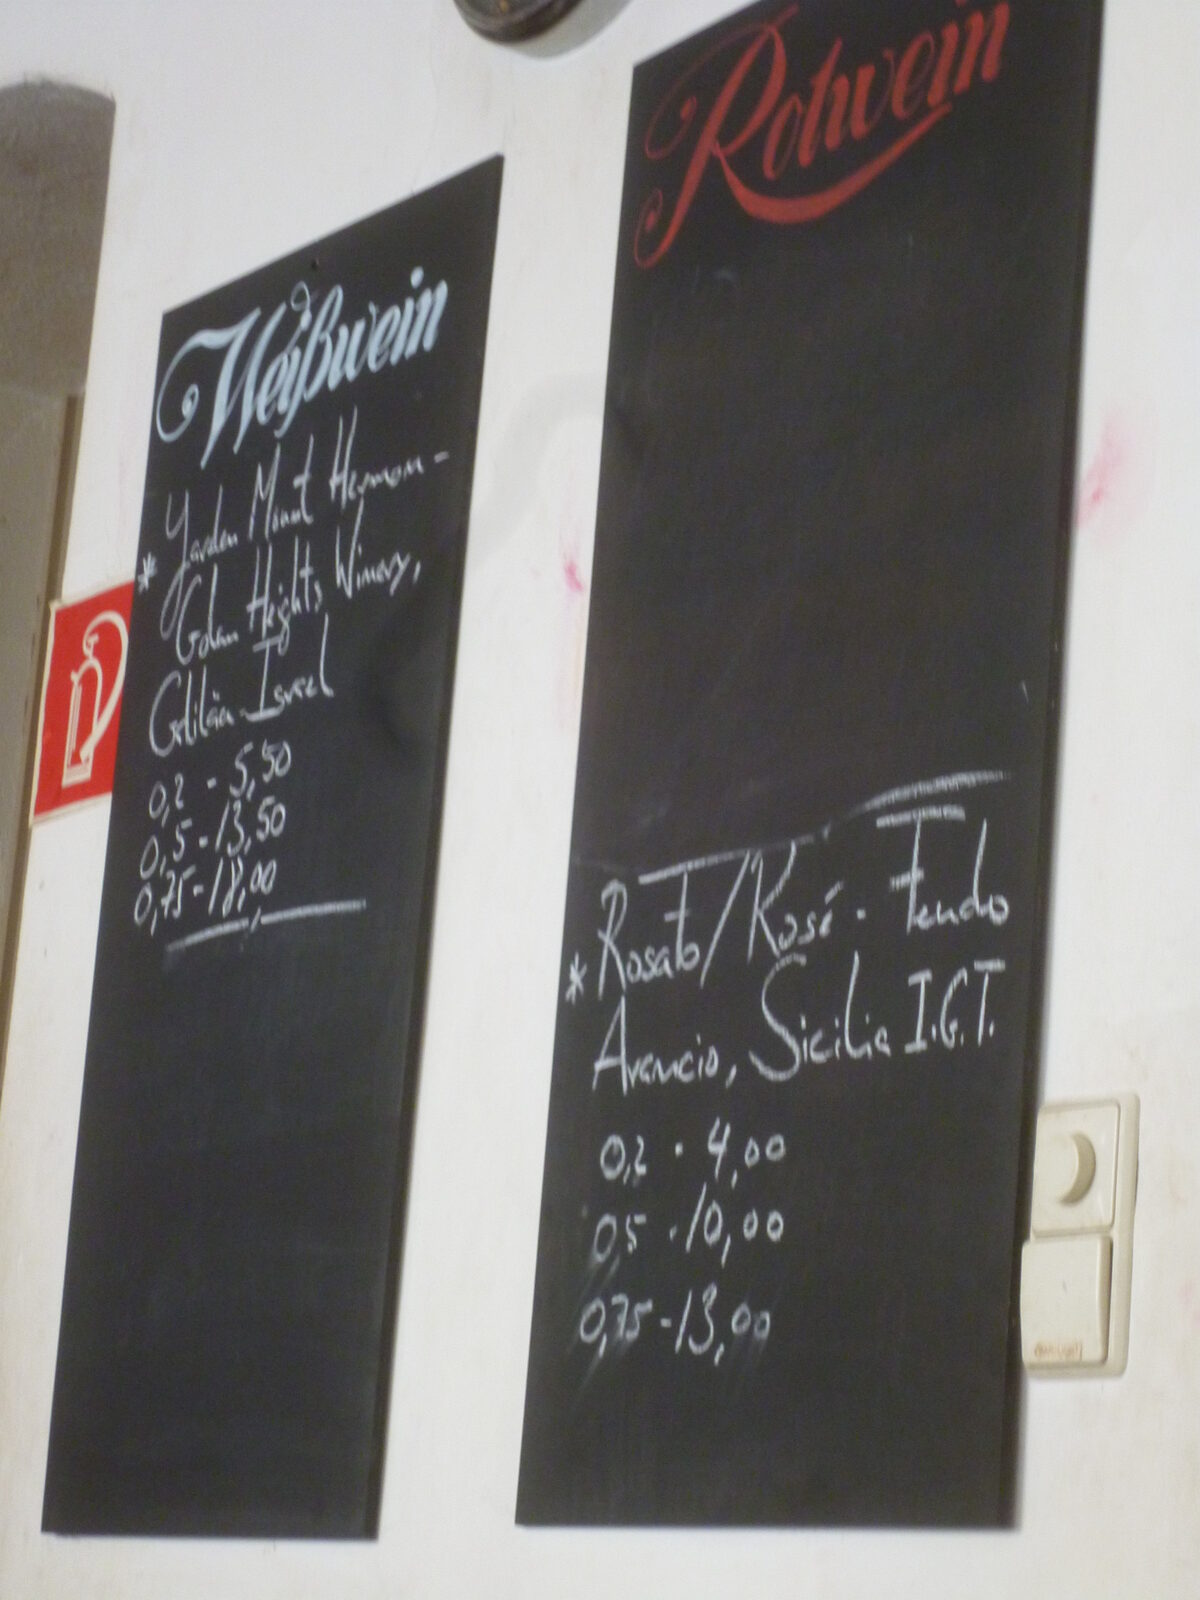 Weißwein
* Yarden Mount Hermon -
Golan Heights Winery,
Galiläa-Israel
0,2 - 5,50
0,5 - 13,50
0,75 - 18,00
Rotwein
* Rosato/Rosé - Feudo
Arancio, Sicilia I.G.T.
0,2 - 4,00
0,5 - 10,00
0,75 - 13,00